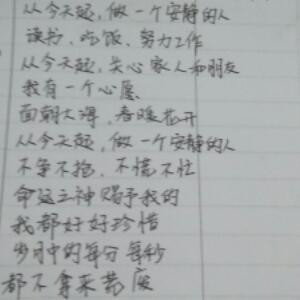 从今天起，做一个安静的人
读书、吃饭、努力工作
从今天起，关心家人和朋友
我有一个心愿
面朝大海，春暖花开
从今天起，做一个安静的人
不争不抢，不慌不忙
命运之神赐予我的
我都好好珍惜
岁月中的每分每秒
都不拿来荒废